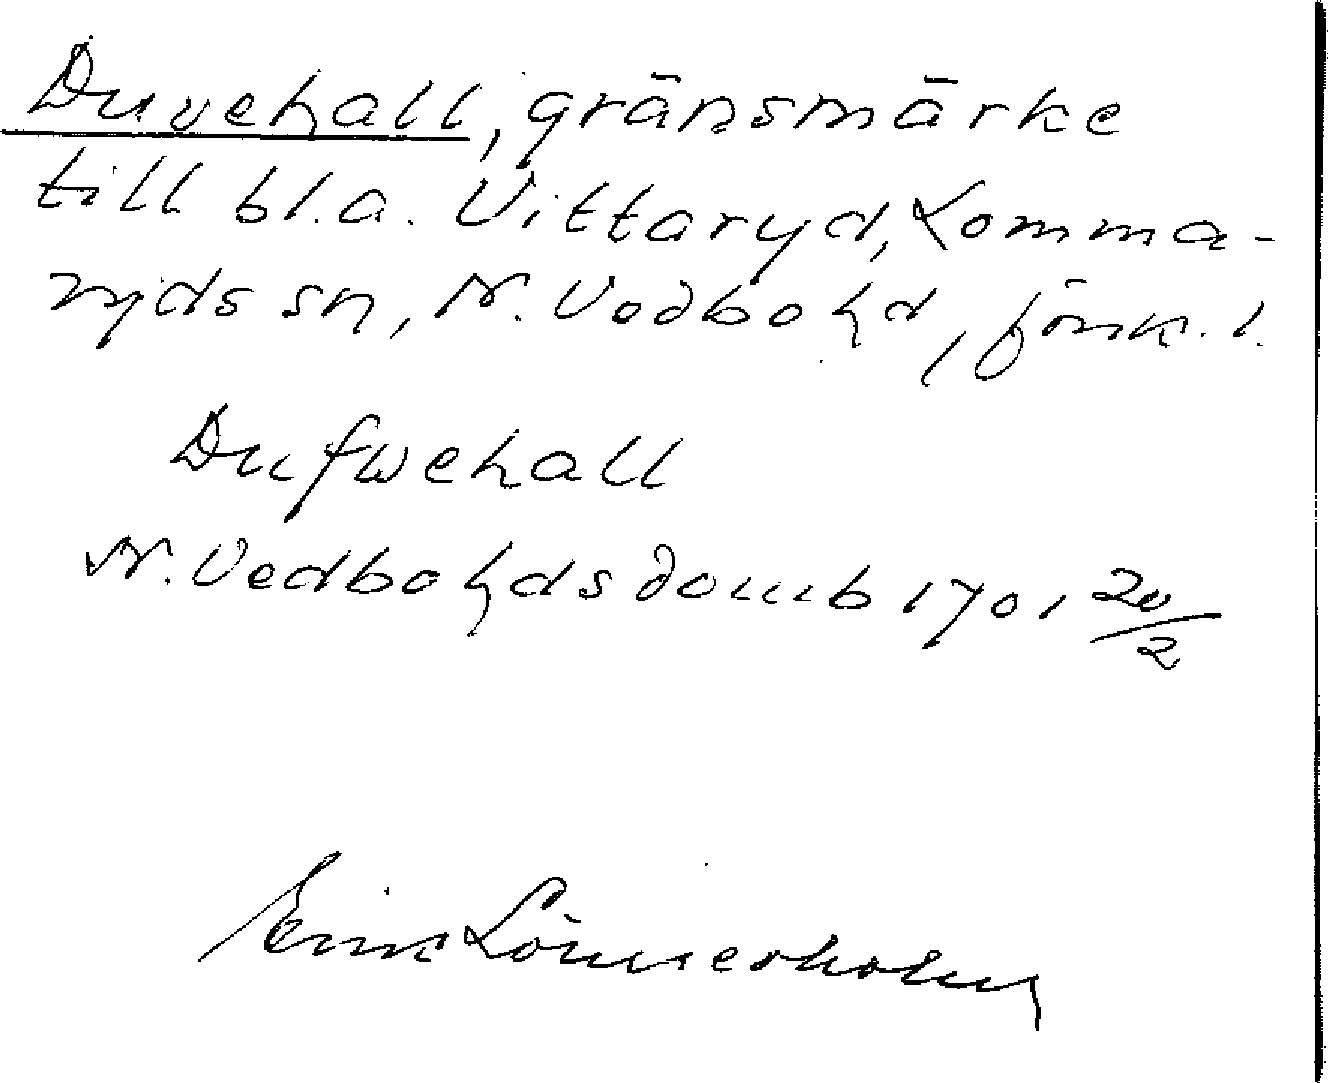 Duvehall, gränsmärke
till bl.a. Vittaryd, Lomma-
ryds sn, N. Vedbo hd, Jönk. l.
Dufwehall
N. Vedbo hds domb 1701 20/2
Einar Lönnerholm